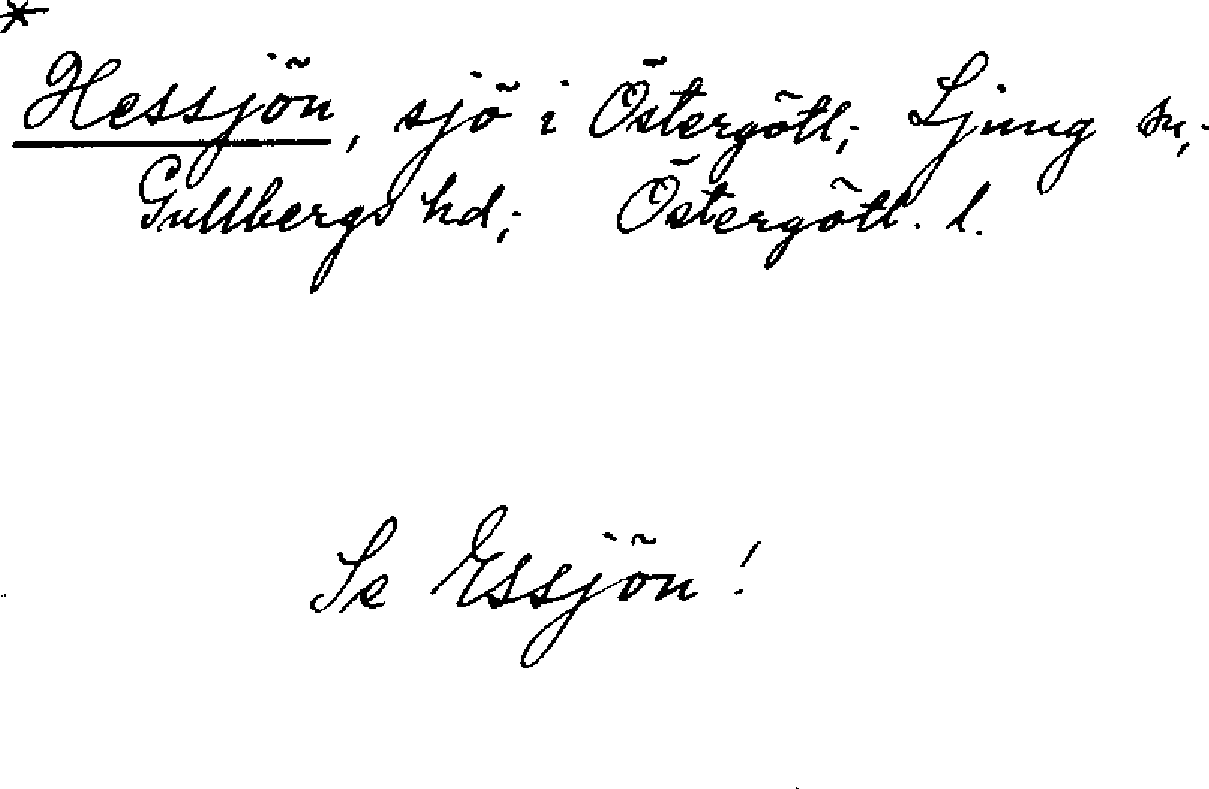 *
Hessjön, sjö i Östergötl; Ljung sn;
Gullbergs hd; Östergötl. l.
Se Essjön!